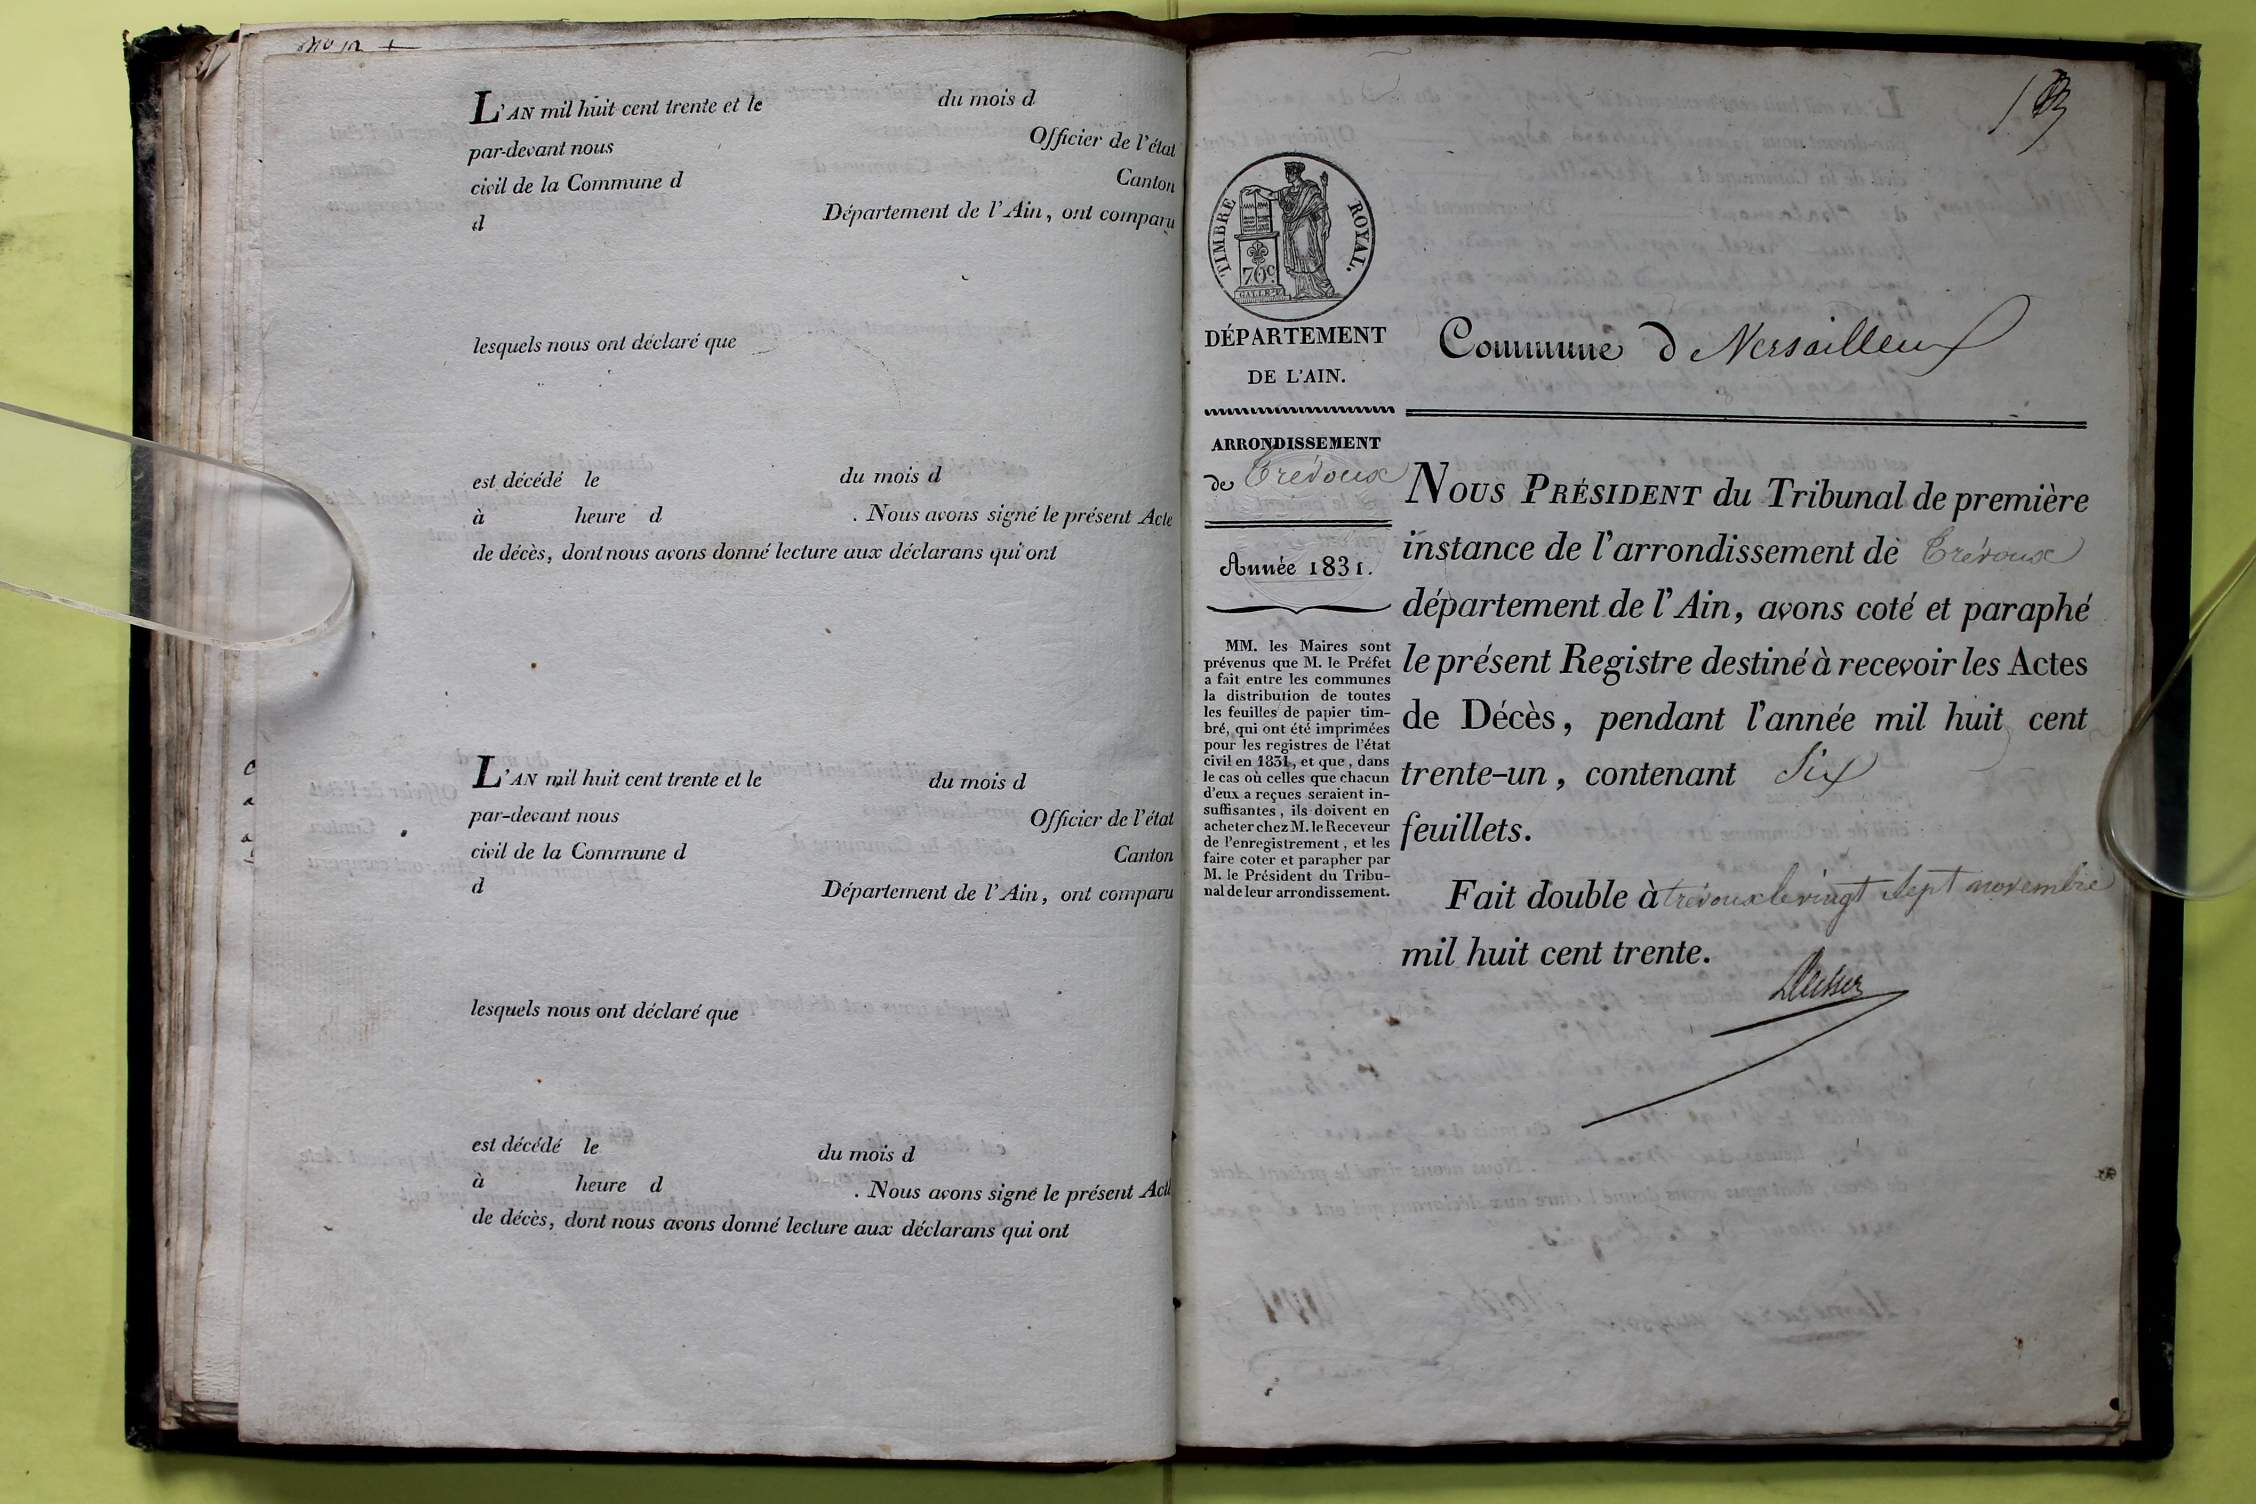 L'AN mil huit cent trente et le du mois d
par-devant nous Officier de l'état
civil de la Commune d Canton
d Département de l'Ain, ont comparu
lesquels nous ont déclaré que
est décédé le du mois d
à heure d . Nous avons signé le présent Acte
de décès, dont nous avons donné lecture aux déclarans qui ont
L'AN mil huit cent trente et le du mois d
par-devant nous Officier de l'état
civil de la Commune d Canton
d Département de l'Ain, ont comparu
lesquels nous ont déclaré que
est décédé le du mois d
à heure d . Nous avons signé le présent Acte
de décès, dont nous avons donné lecture aux déclarans qui ont
TIMBRE ROYAL.
70c
DÉPARTEMENT
DE L'AIN.
ARRONDISSEMENT
de Trévoux
Année 1831.
MM. les Maires sont
prévenus que M. le Préfet
a fait entre les communes
la distribution de toutes
les feuilles de papier tim-
bré, qui ont été imprimées
pour les registres de l'état
civil en 1831, et que, dans
le cas où celles que chacun
d'eux a reçues seraient in-
suffisantes, ils doivent en
acheter chez M. le Receveur
de l'enregistrement, et les
faire coter et parapher par
M. le Président du Tribu-
nal de leur arrondissement.
Commune d Versailleux
NOUS PRÉSIDENT du Tribunal de première
instance de l'arrondissement de Trévoux
département de l'Ain, avons coté et paraphé
le présent Registre destiné à recevoir les Actes
de Décès, pendant l'année mil huit cent
trente-un, contenant Six
feuillets.
Fait double à trévoux le vingt Sept novembre
mil huit cent trente.